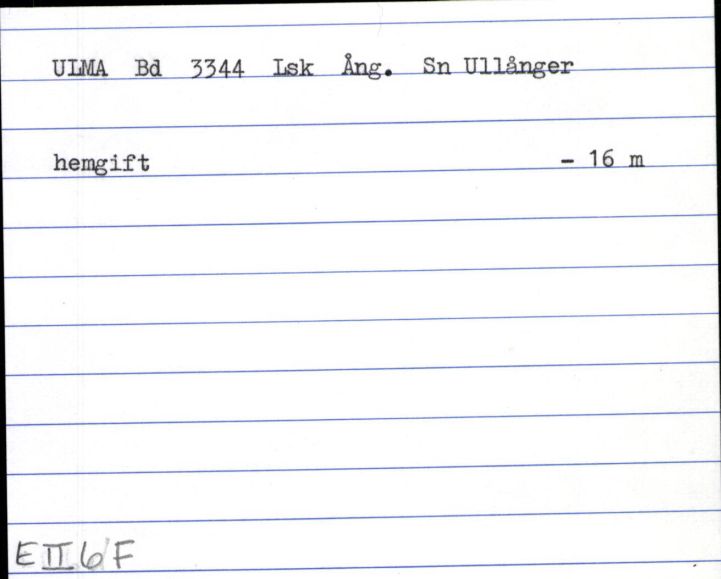 ULMA Bd 3344 Lsk Ång. Sn Ullånger
hemgift - 16 m
E II 6 F